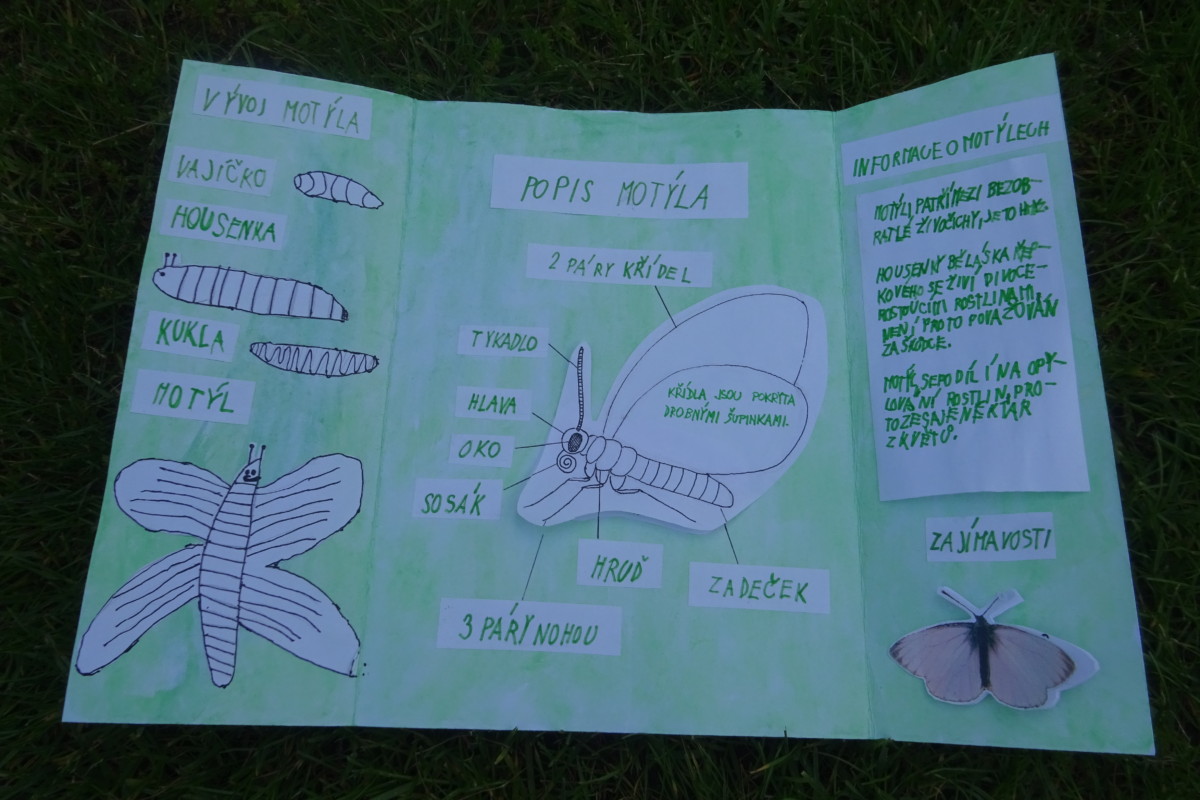 VÝVOJ MOTÝLA
VAJÍČKO
HOUSENKA
KUKLA
MOTÝL
POPIS MOTÝLA
2 PÁRY KŘÍDEL
TYKADLO
HLAVA
OKO
SOSÁK
KŘÍDLA JSOU POKRYTA
DROBNÝMI ŠUPINKAMI.
HRUĎ
ZADEČEK
3 PÁRY NOHOU
INFORMACE O MOTÝLECH
MOTÝLI PATŘÍ MEZI BEZOB-
RATLÉ ŽIVOČICHY, JE TO HMYZ.
HOUSENKY BĚLÁSKA ŘEP-
KOVÉHO SE ŽIVÍ DIVOCE-
ROSTOUCÍMI ROSTLINAMI,
NENÍ PROTO POVAŽOVÁN
ZA ŠKŮDCE.
MOTÝL SE PODÍLÍ NA OPY-
LOVÁNÍ ROSTLIN, PRO-
TOŽE SAJE NEKTAR
Z KVĚTŮ.
ZAJÍMAVOSTI